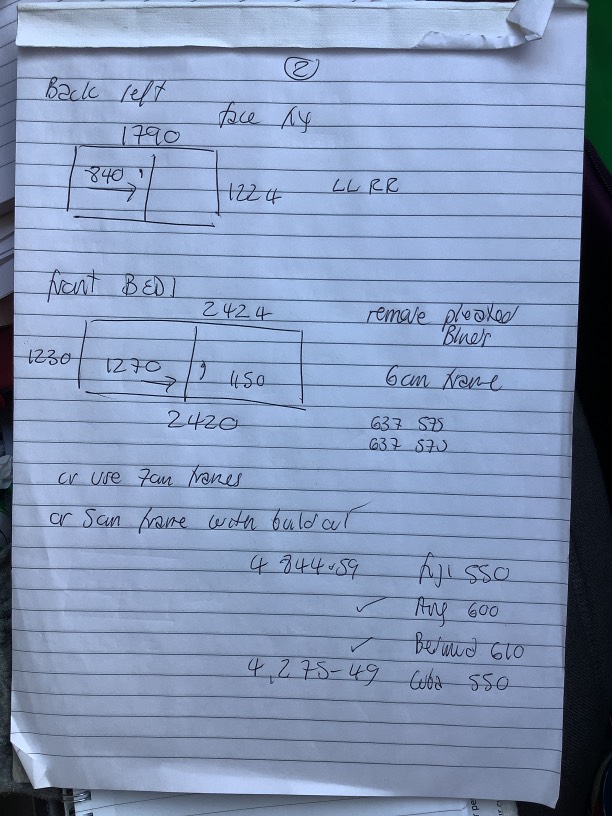 2
Back left
face fix
1790
840
1224 LL RR
front BED1
2424
remove pleated
Blinds
1230
1270
1150
6cm frame
2420
637 575
637 570
or use 7cm frames
or 5cm frame with buildout
4 844.59 Fiji 550
Ang 600
Bermud 610
4,275-49 Cuba 550